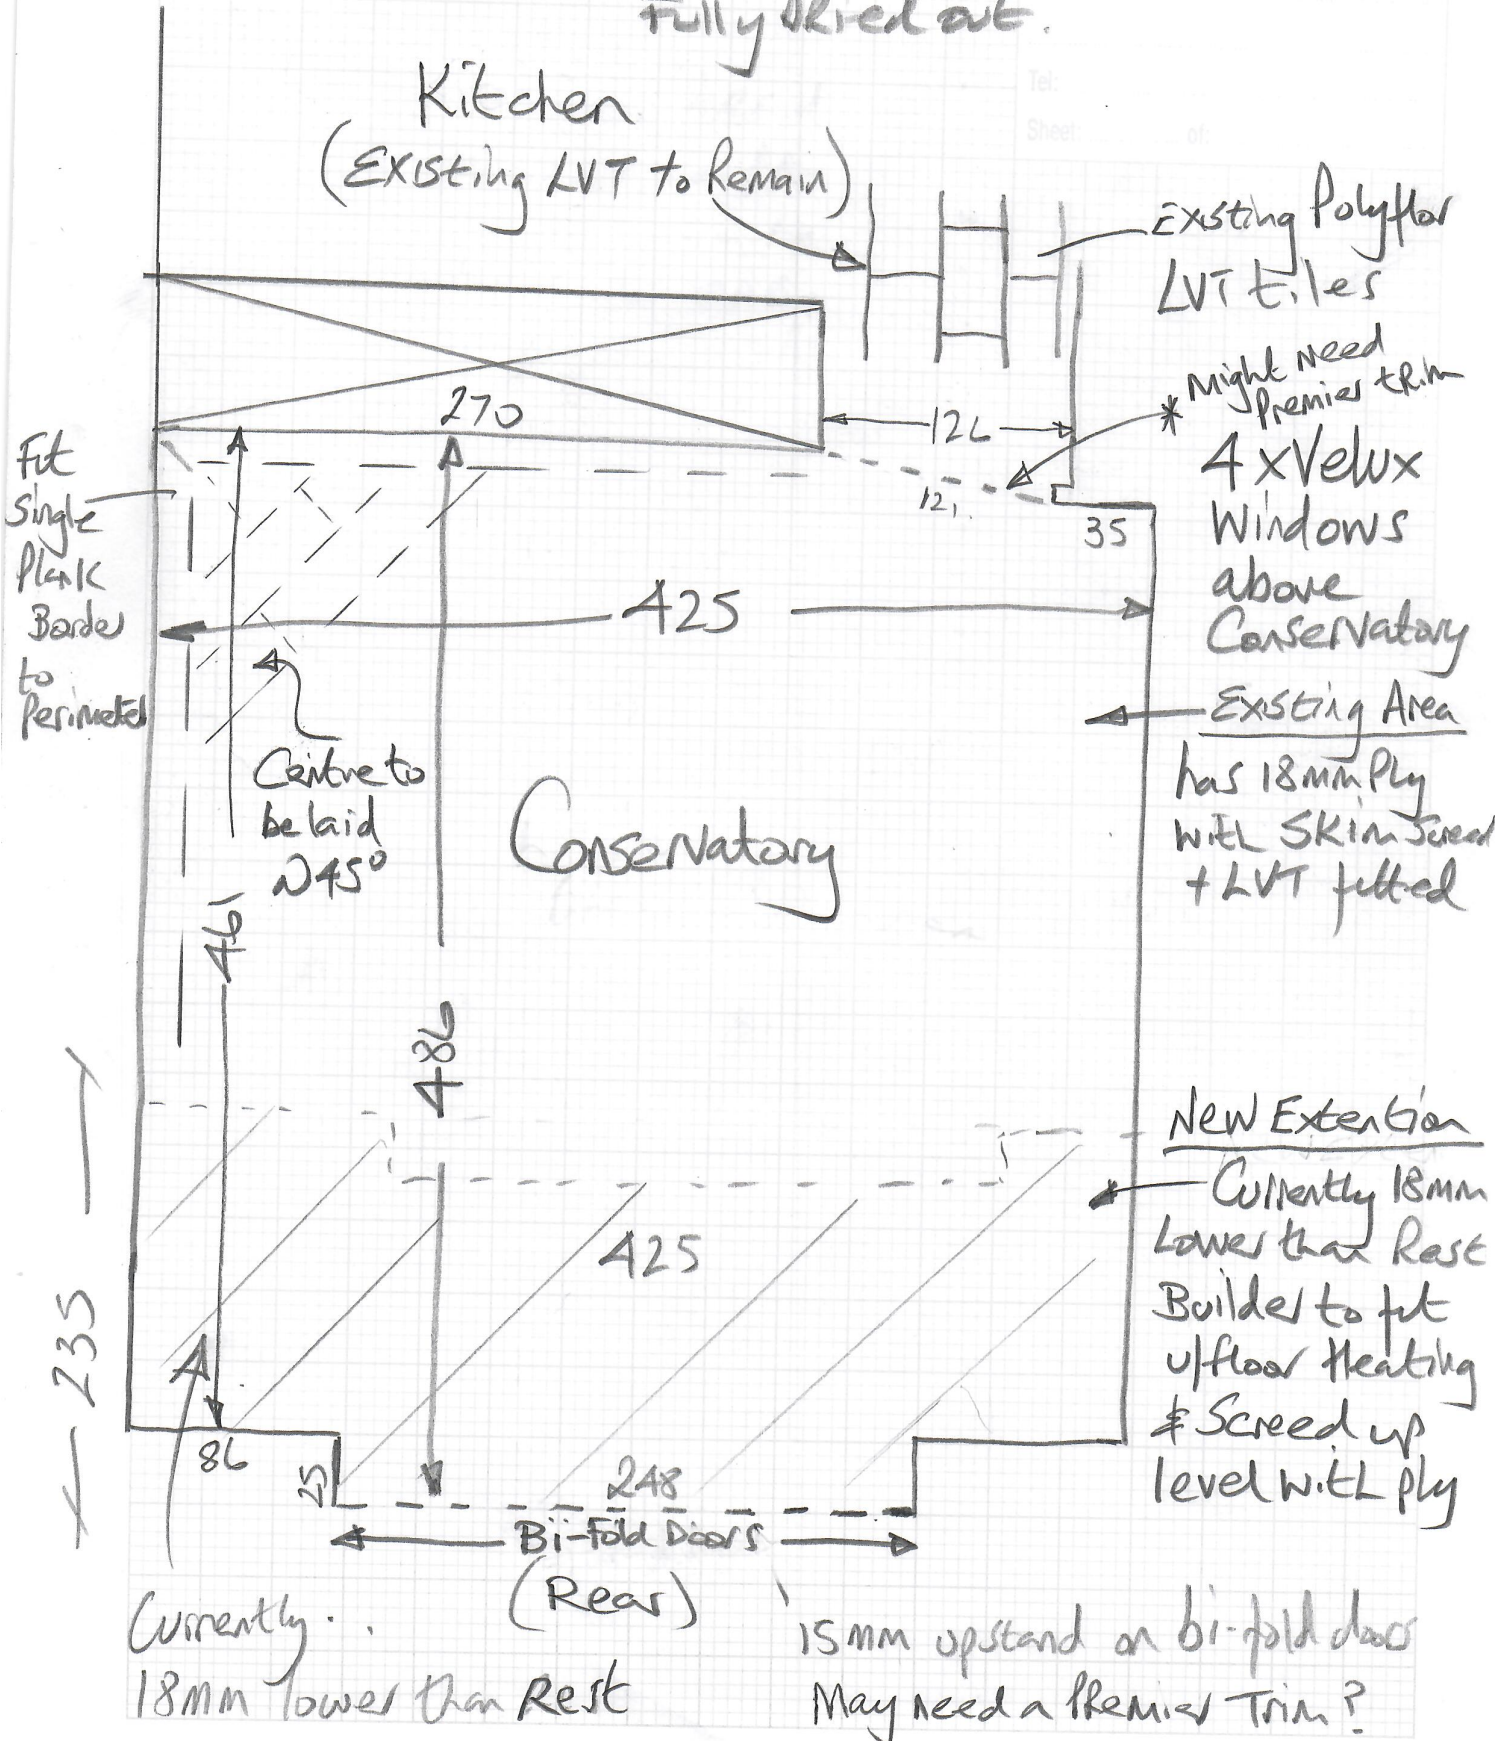 Fully Dried out.
Tel:
Sheet: of:
Kitchen
(Existing LVT to Remain)
Existing Polyflor
LVT tiles
* Might need
Premier tRim
270
126
121
35
Fit
Single
Plank
Border
to
Perimeter
4 x Velux
Windows
above
Conservatory
425
Existing Area
has 18mm Ply
with Skim Screed
+ LVT fitted
Centre to
be laid
@45°
Conservatory
461
486
New Extention
Currently 18mm
Lower than Rest
Builder to fit
u/floor Heating
& Screed up
level with ply
425
235
86
25
248
Bi-Fold Doors
(Rear)
Currently..
18mm lower than Rest
15mm upstand on bi-fold doors
May need a Premier Trim?